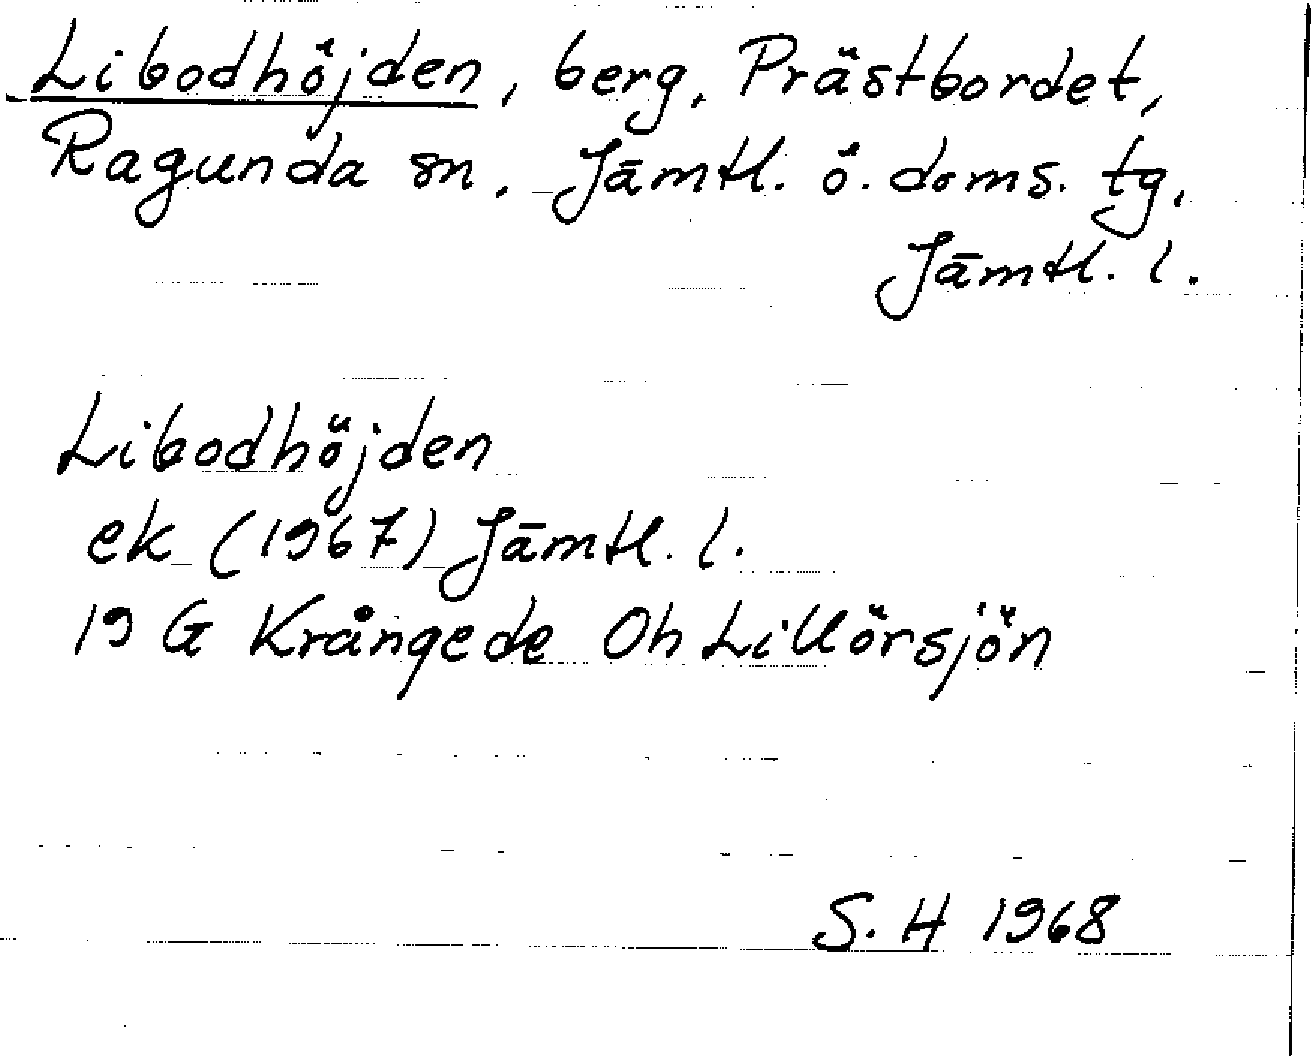 Libodhöjden, berg, Prästbordet,
Ragunda sn. Jämtl. ö. doms. tg.
Jämtl. l.
Libodhöjden
ek (1967) Jämtl. l.
19 G Krångede Oh Lillörsjön
S. H 1968